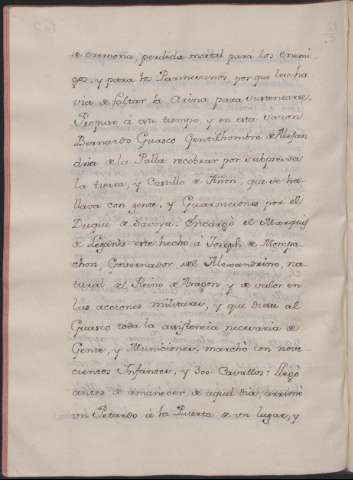 de Cremona, perdida mortal para los Enemi
gos, y para los Parmesanos, porque les ha
via de faltar la Arina para sustentarse.
Propuso á este tiempo, y en esta sazon
Bernardo Guasco Gentilhombre de Alejan
dria de la Palla recobrar por subpressa
la tierra, y Castillo de Añon, que se ha
llava con gente, y Guarniciones por el
Duque de Savoya. Encargó el Marques
de Leganés este hecho á Joseph de Monpa
chon, Governador del Alexandrino, na
tural del Reino de Aragon y de valor en
las acciones militares, y que diese al
Guasco toda la assistencia necesaria de
Gente, y Municiones, marchó con nove
cientos Infantes, y 300 Cavallos: llegó
antes de amanecer de aquel dia, arrimó
un Petardo á la Puerta de un lugar, y